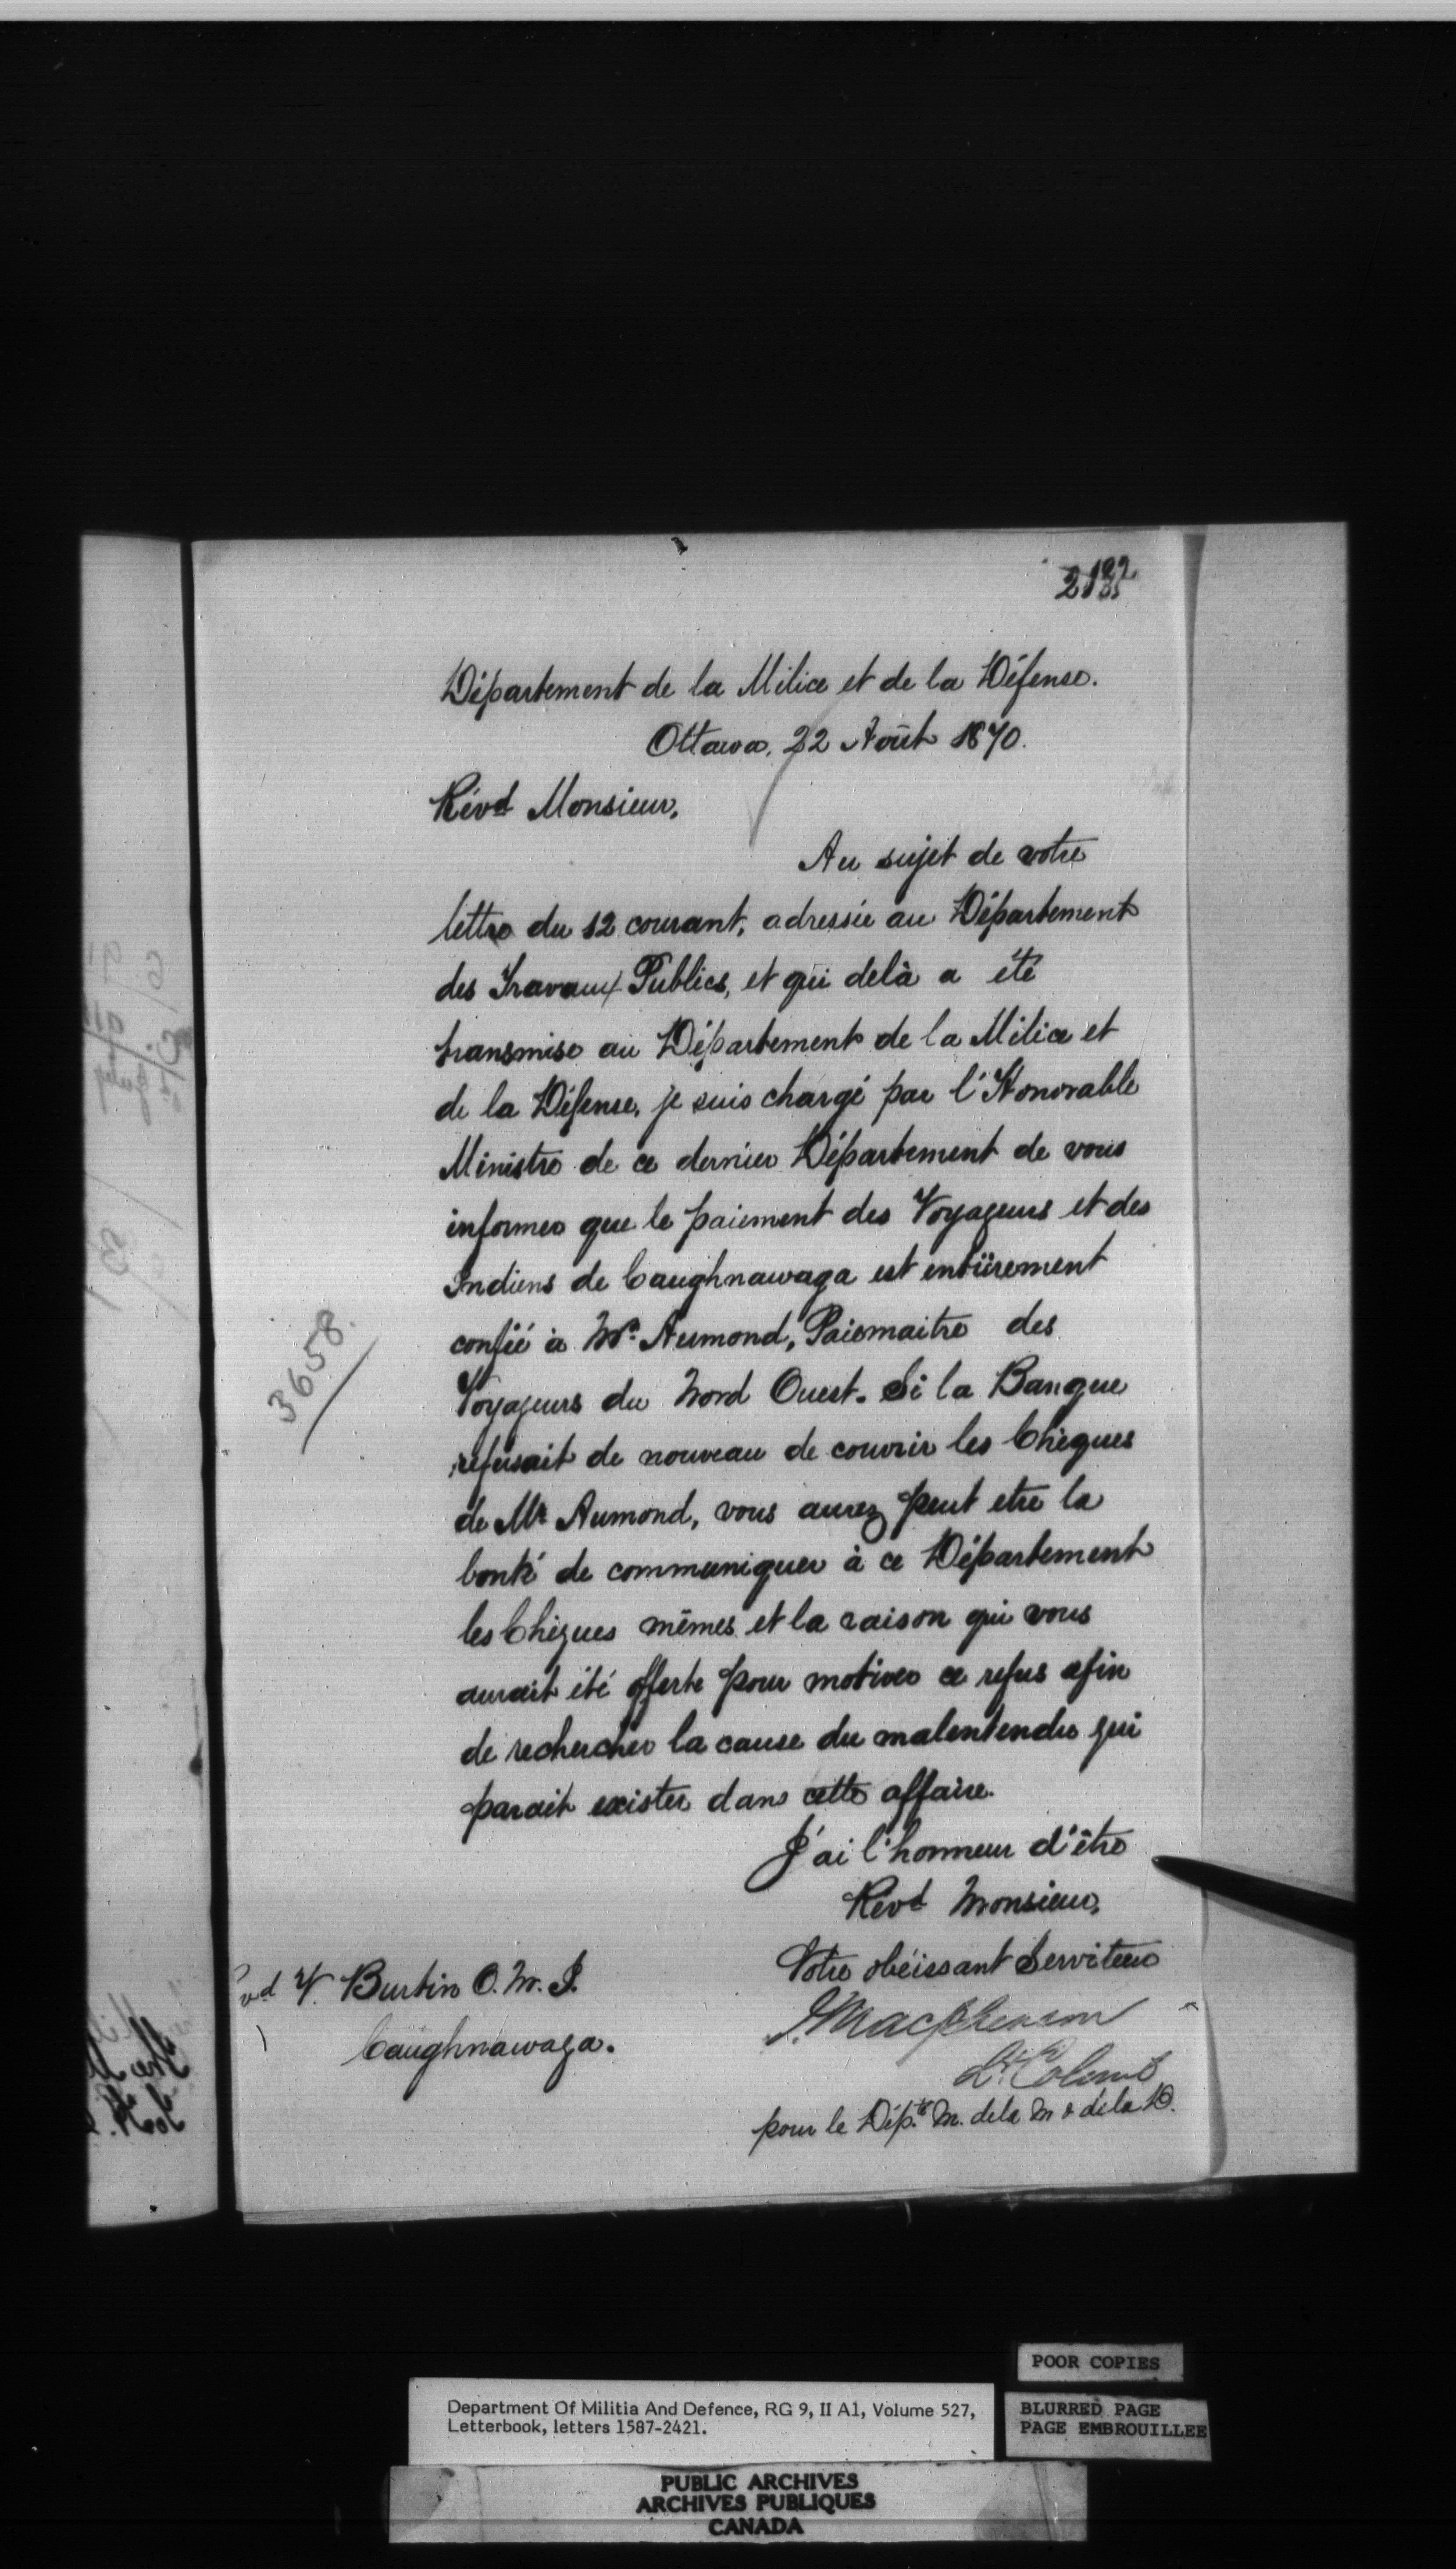 2182
Département de la Milice et de la Défense.
Ottawa, 22 Août 1870.
Révd Monsieur,
Au sujet de votre
lettre du 12 courant, adressée au Département
des Travaux Publics, et qui delà a été
transmise au Département de la Milice et
de la Défense, je suis chargé par l'Honorable
Ministre de ce dernier Département de vous
informer que le paiement des Voyageurs et des
Indiens de Caughnawaga est entièrement
confié à Mr. Aumond, Paiemaitre des
3658.
Voyageurs du Nord Ouest. Si la Banque
refusait de nouveau de couvrir les Chèques
de Mr Aumond, vous aurez peut etre la
bonté de communiquer à ce Département
les Chèques mêmes et la raison qui vous
aurait été offerte pour motiver ce refus afin
de rechercher la cause du malentendu qui
parait exister dans cette affaire.
J'ai l'honneur d'être
Révd Monsieur,
Votre obéissant Serviteur
J. Macpherson
Lt. Colonel
pour le Dép.té M. de la M & de la D.
vd V. Burtin O.M.I.
Caughnawaga.
POOR COPIES
Department Of Militia And Defence, RG 9, II A1, Volume 527,
Letterbook, letters 1587-2421.
BLURRED PAGE
PAGE EMBROUILLEE
PUBLIC ARCHIVES
ARCHIVES PUBLIQUES
CANADA